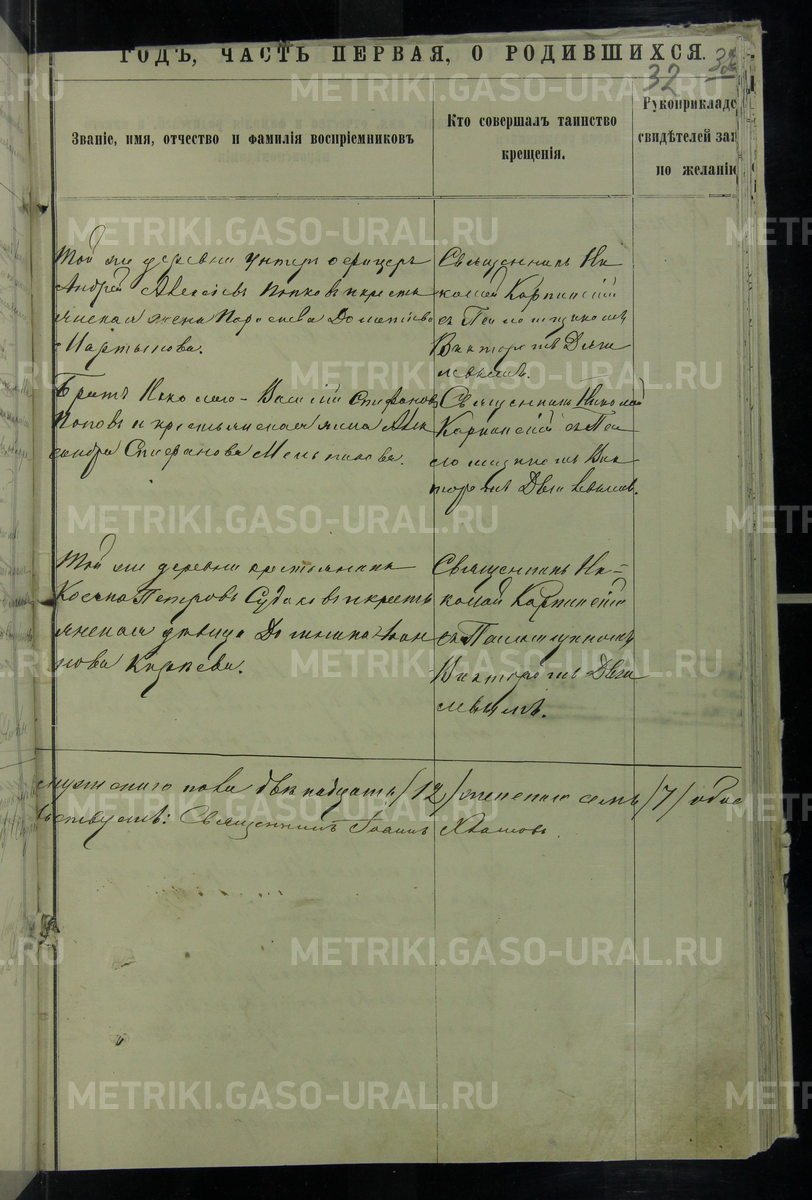 ГОДЪ, ЧАСТЬ ПЕРВАЯ, О РОДИВШИХСЯ.
32
Званіе, имя, отчество и фамилія воспріемниковъ
Кто совершалъ таинство
крещенія.
Рукоприкладс
свидѣтелей зап
по желанію
Той же деревни унтеръ офицеръ
Андрей Алексѣевъ Поповъ и кресть
янская жена Дометіева
Мартынова.
Священникъ Ни
колай Карпинскій
съ Псаломщикомъ
Викторомъ
Братъ Василій Стефановъ
Поповъ и крестьянская жена Алек
сандра Стефанова Мельникова.
Священникъ Николай
Карпинскій съ Пса
ломщикомъ Вик
торомъ
Той же деревни крестьянинъ
Косьма Петровъ Судаковъ и кресть
янская дѣвица Іоан
нова
Священникъ Ни-
колай Карпинскій
съ Псаломщикомъ
Викторомъ
мужескаго пола двѣнадцать /12/ женскаго семь /7/ обое
Священникъ Іоаннъ
METRIKI.GASO-URAL.RU